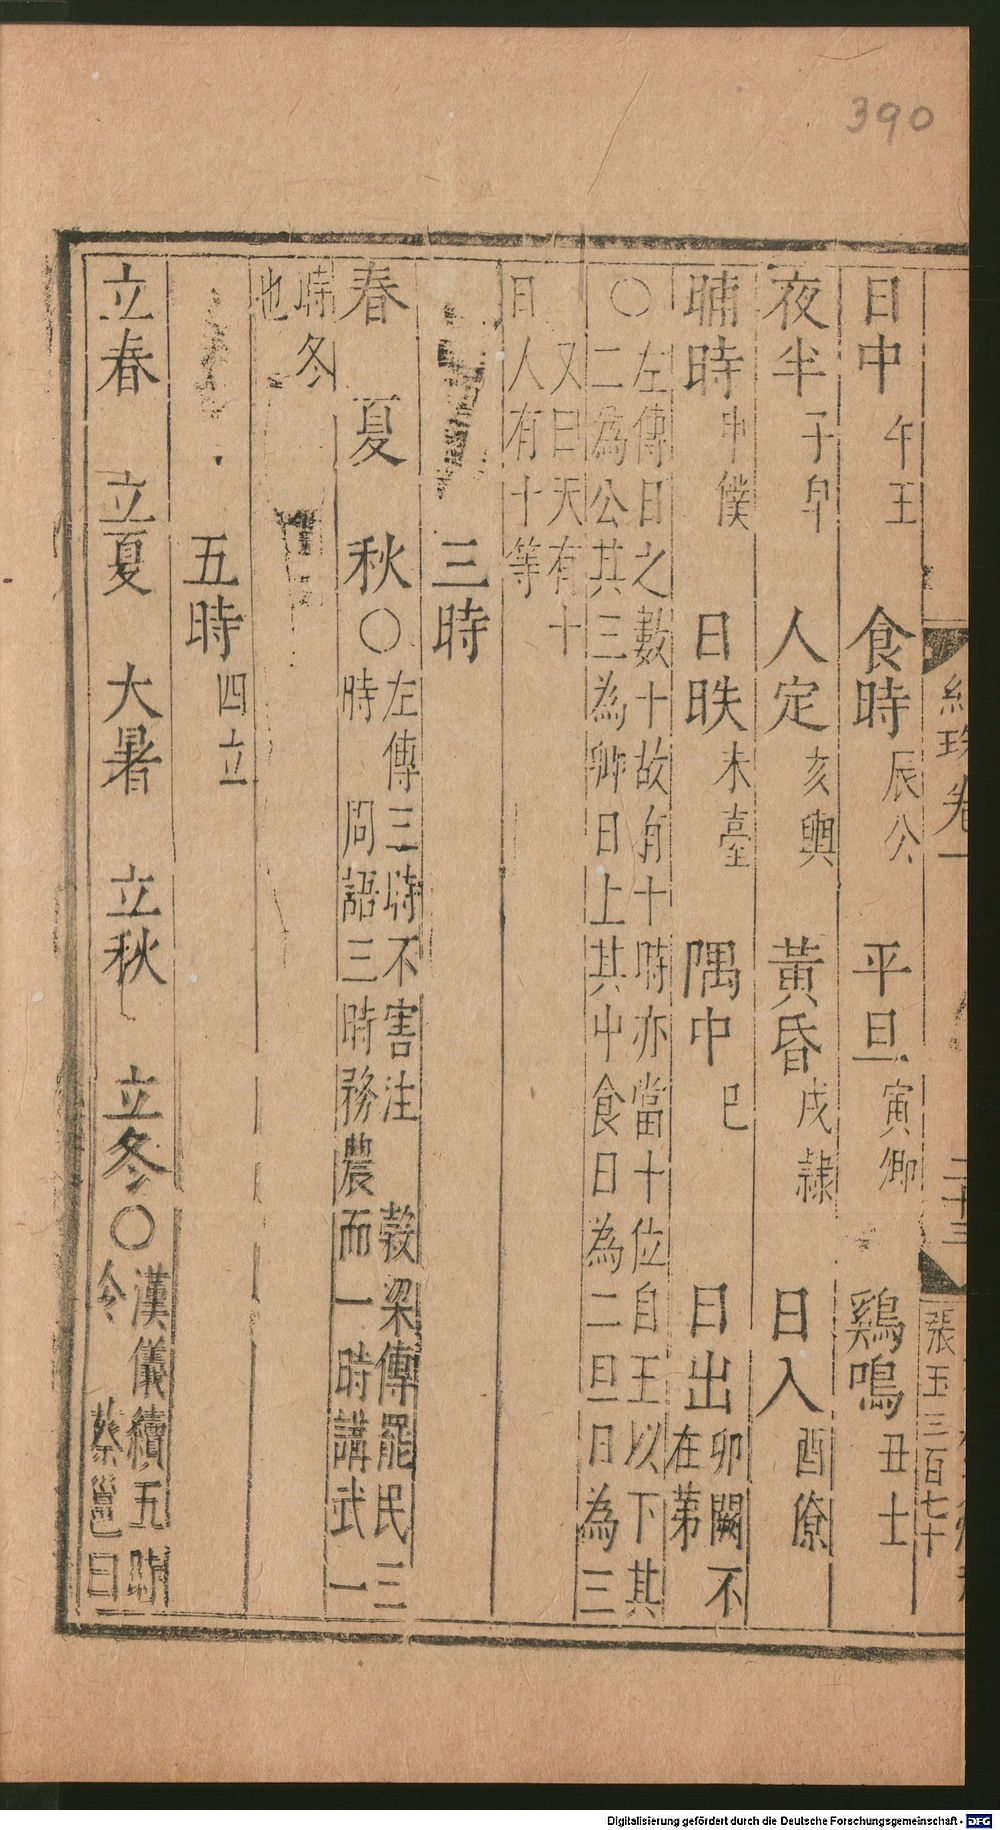 390
紺珠卷一
二十三
張玉三百七十
日中午王 食時辰公 平旦寅卿 鷄鳴丑士
夜半子皁 人定亥輿 黃昏戌隷 日入酉僚
晡時申僕 日昳未臺 隅中巳 日出卯闕不在苐
○左傳日之數十故有十時亦當十位自王以下其
二為公其三為卿日上其中食日為二旦日為三
又曰天有十
日人有十等
三時
春 夏 秋○左傳三時不害注 穀梁傳罷民三
時 問語三時務農而一時講武一
時冬
也
五時四立
立春 立夏 大暑 立秋 立冬○漢儀續五時
令 蔡邕曰
Digitalisierung gefördert durch die Deutsche Forschungsgemeinschaft - DFG